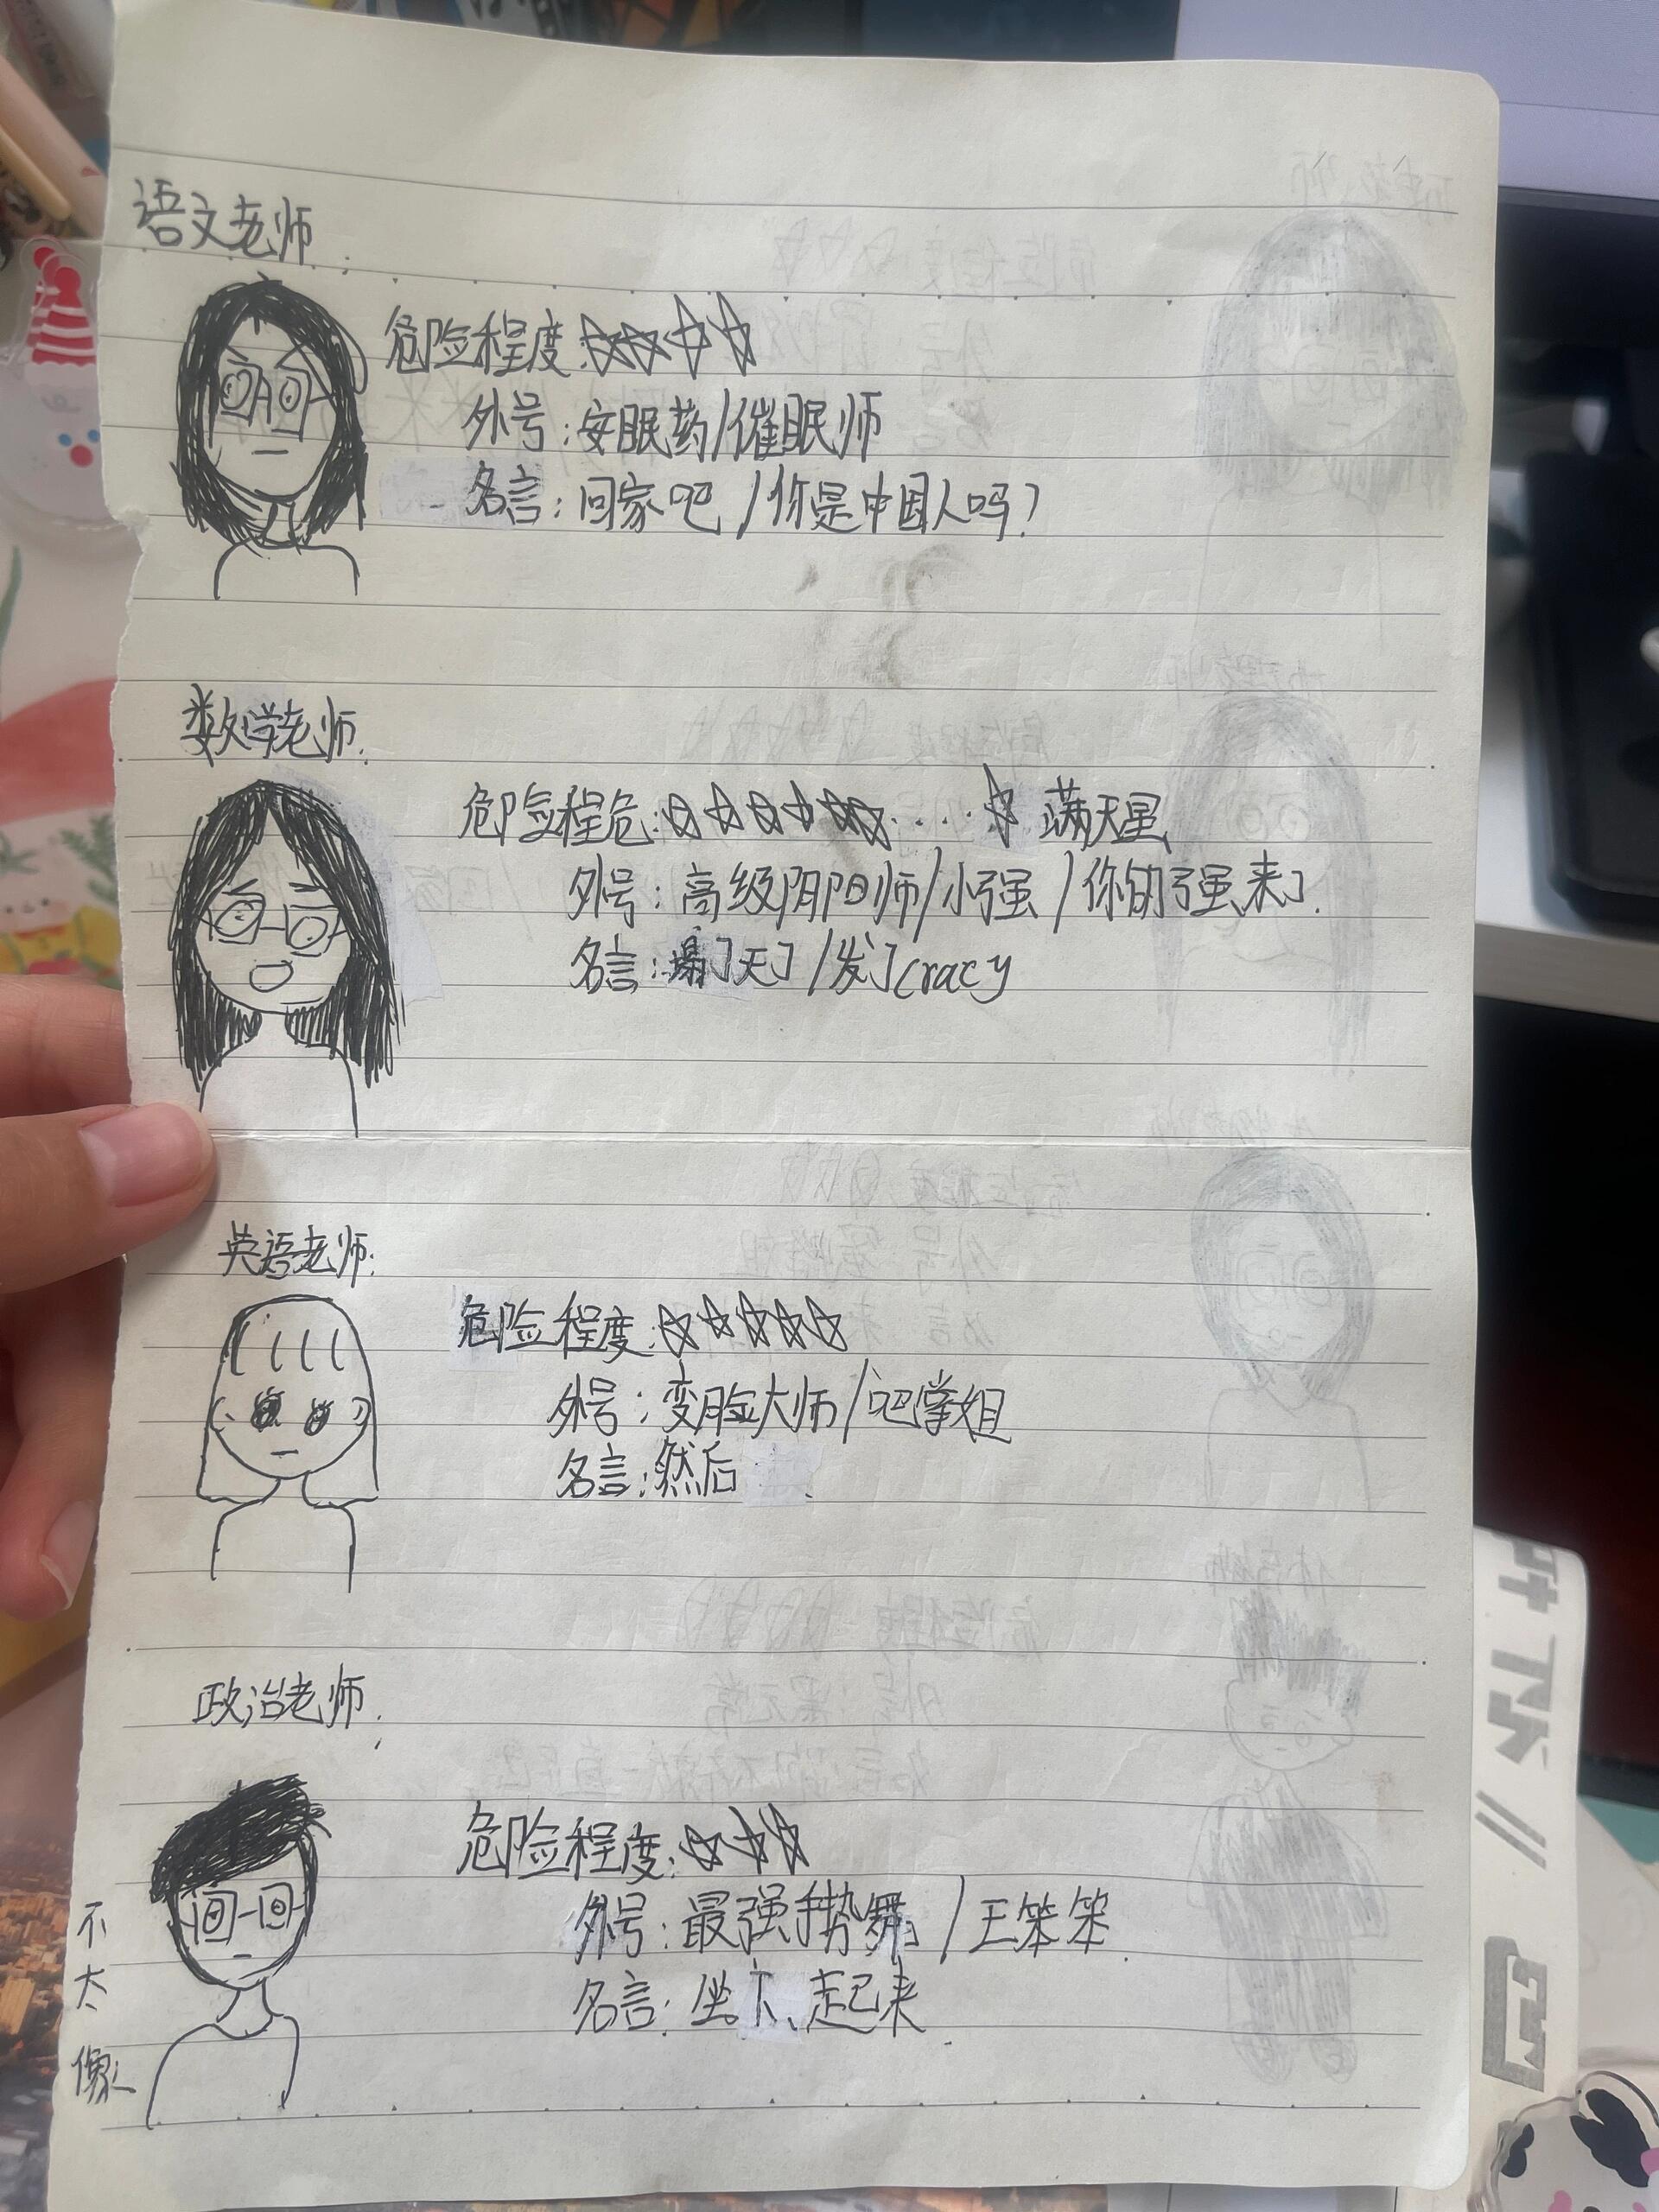 语文老师:
危险程度:☆☆☆☆
外号:安眠药/催眠师
名言:回家吧/你是中国人吗?
数学老师.
危险程危:☆☆☆☆☆☆....☆ 满天星
外号:高级阴阳师/小强/你的强来了.
名言:塌了天了/发了cracy
英语老师:
危险程度:☆☆☆☆☆
外号:变脸大师/吧掌姐
名言:然后
政治老师:
危险程度:☆☆☆
外号:最强手势舞/王笨笨.
名言:坐下、起来.
不太像